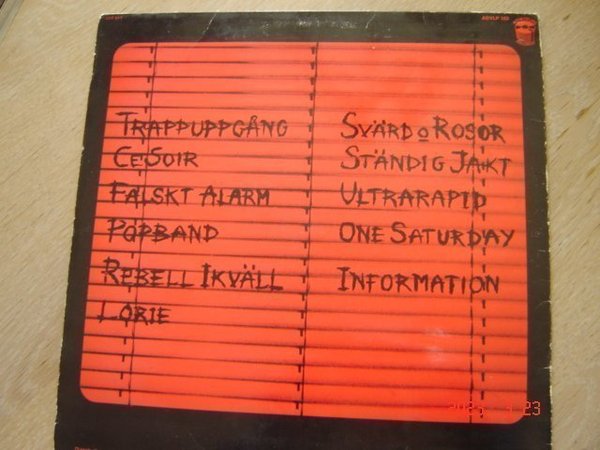 TRAPPUPPGÅNG
CE SOIR
FALSKT ALARM
POPBAND
REBELL IKVÄLL
LORIE
SVÄRD O ROSOR
STÄNDIG JAKT
ULTRARAPID
ONE SATURDAY
INFORMATION